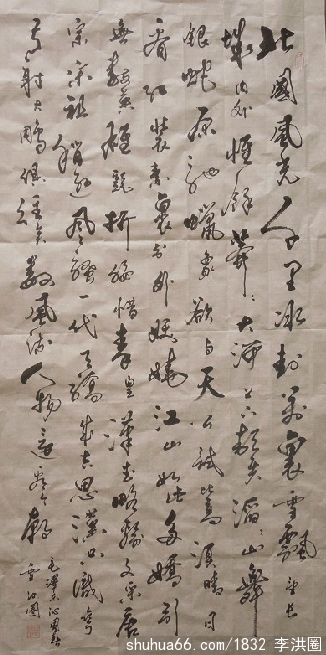 北國風光千里冰封万裏雪飄望长
城内外惟馀莽莽大河上下顿失滔滔山舞
银蛇原驰蠟象欲与天公试比高须晴日
看红装素裹分外妖娆江山如此多嬌引
無數英雄競折腰惜秦皇漢武略输文采唐
宗宋祖稍逊風骚一代天骄成吉思漢只識弯
弓射大雕俱往矣數風流人物还看今朝
毛泽东沁园春
雪 洪圈
shuhua66.com/1832 李洪圈